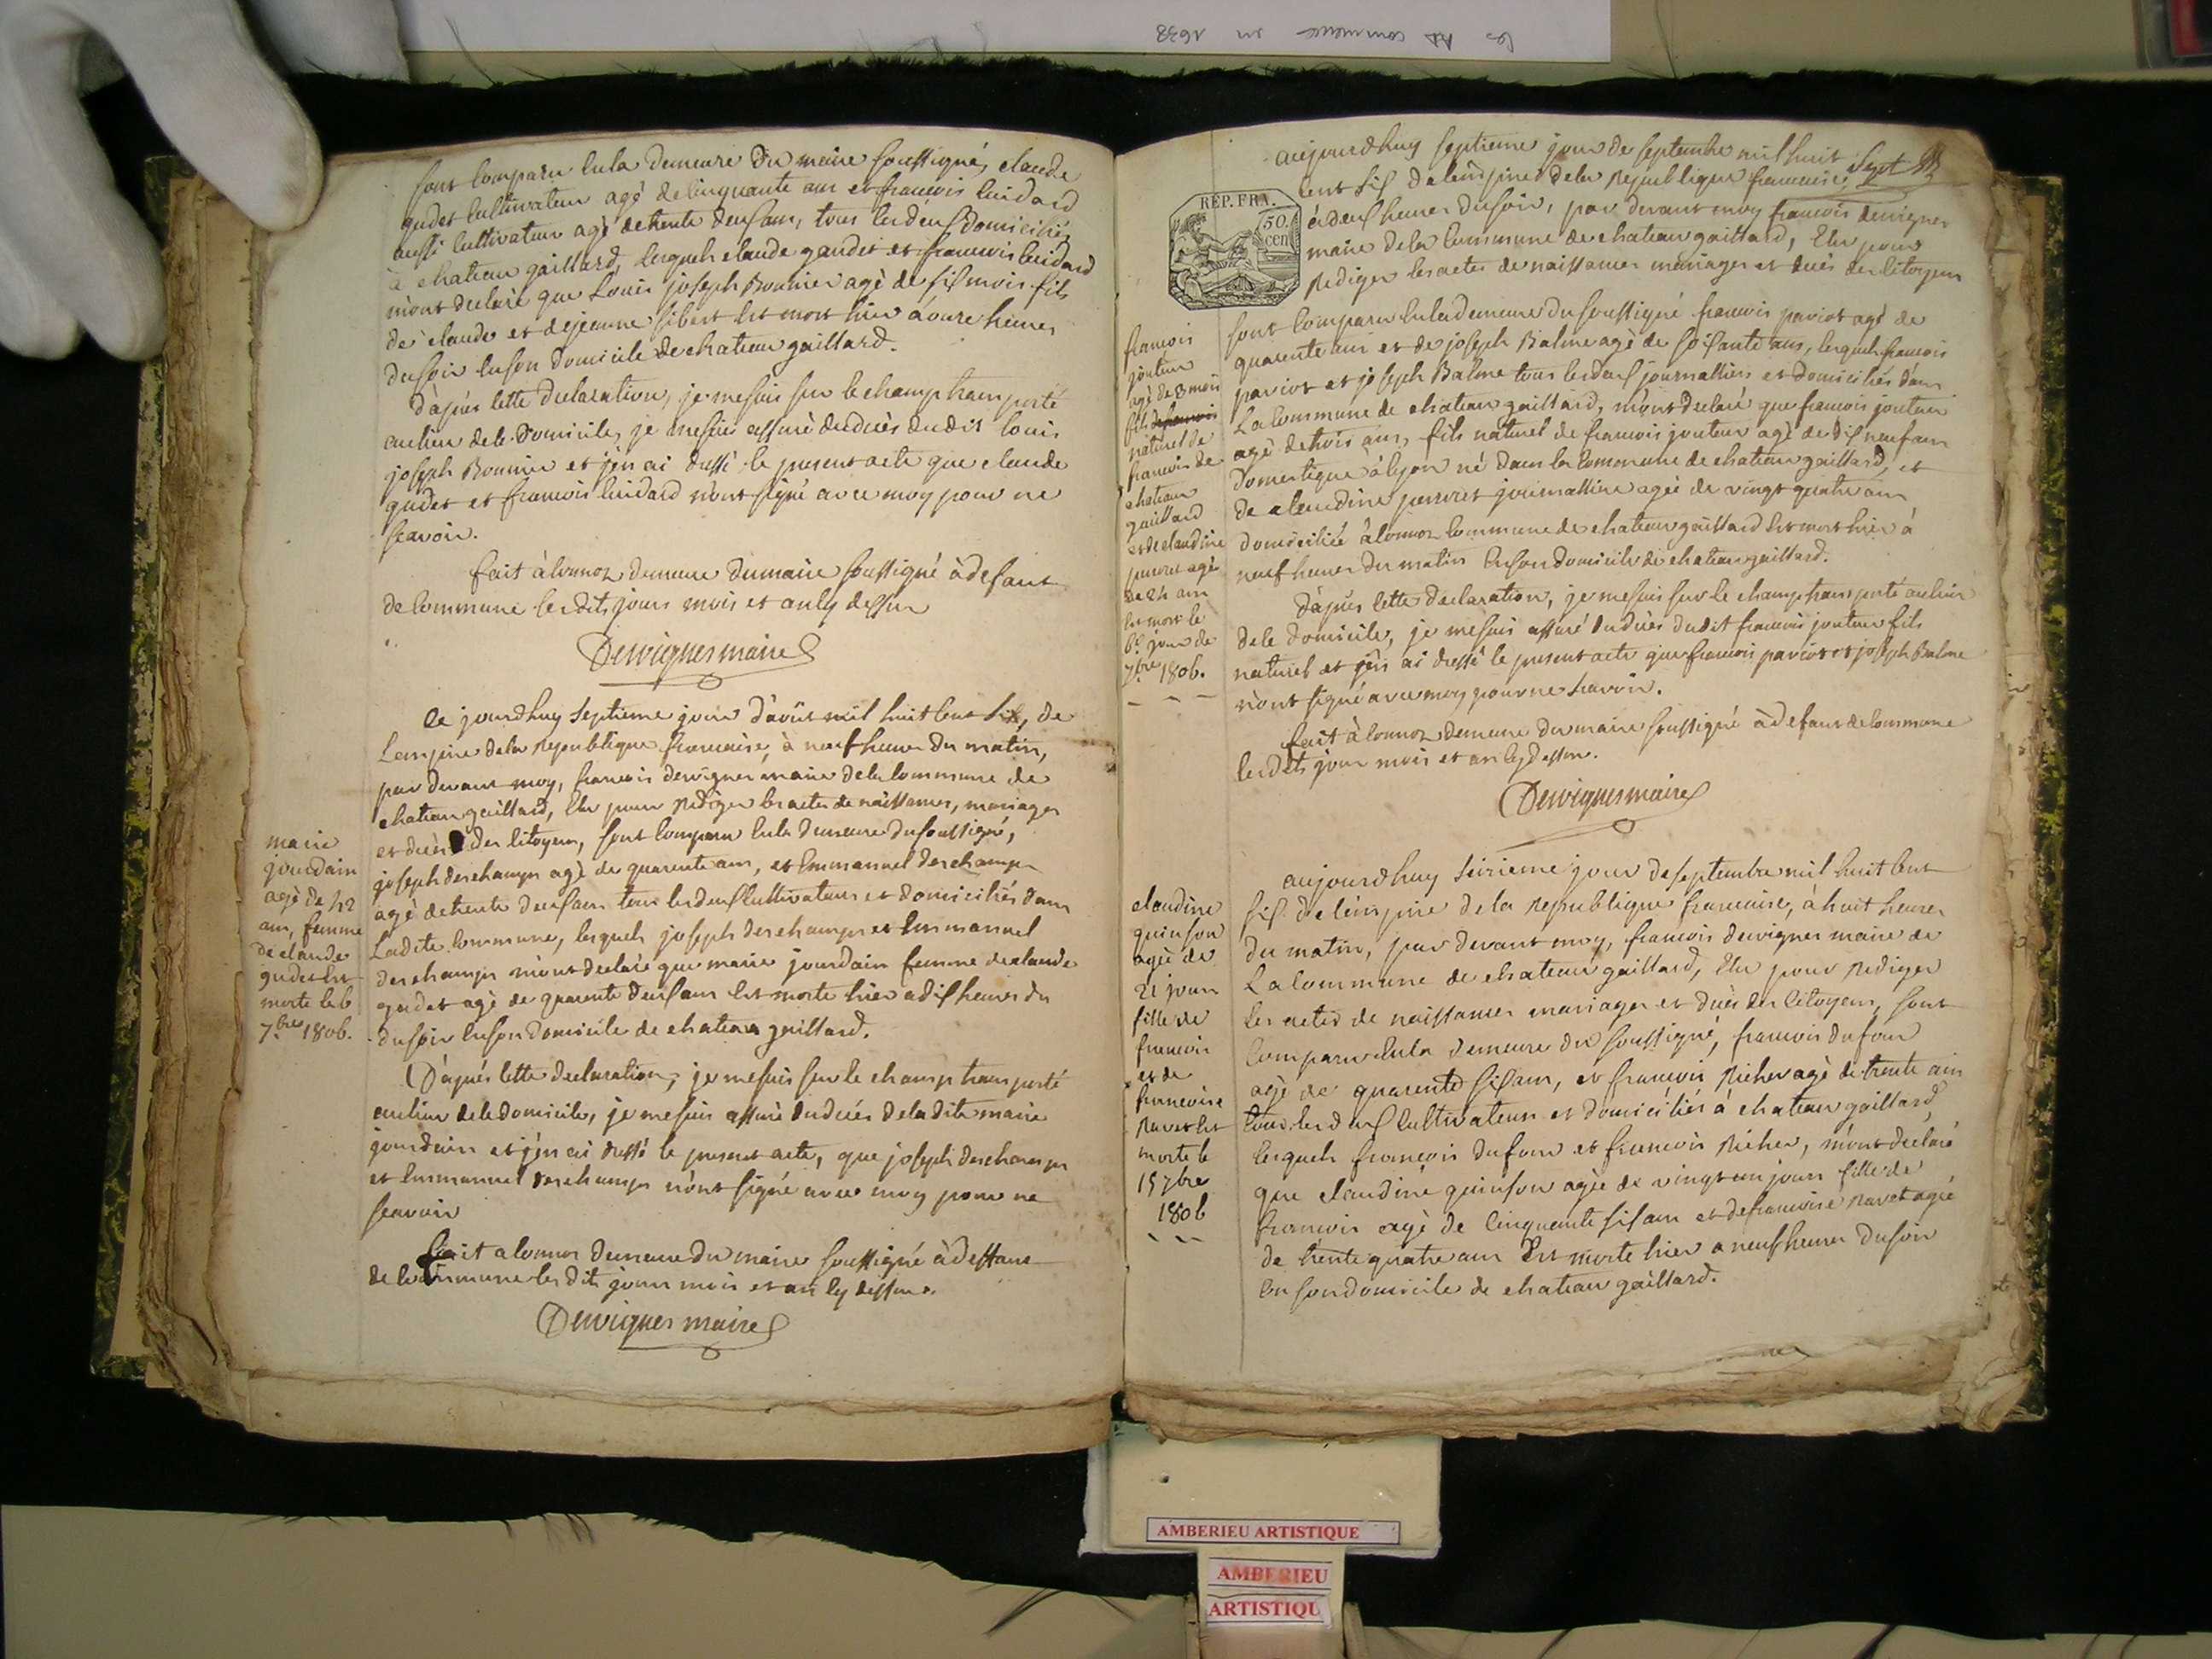 les commence en 1638
sont comparu en la demeure du maire soussigné, claude
gudet cultivateur agé de cinquante ans et francois cuidard
aussi cultivateur agé de trente deux ans, tous les deux domiciliés
à chateau gaillard, lesquels claude gaudet et francois cuidard
m'ont declaré que Louis joseph Bonnier agé de six mois fils
de claude et de jeanne sibert est mort hier à onze heures
du soir en son domicile de chateau gaillard.
d'après cette declaration, je me suis sur le champ transporté
au lieu de ce domicile, je me suis assuré du decès dudit louis
joseph Bonnier et j'en ai dressé le present acte que claude
gudet et francois cuidard n'ont signé avec moy pour ne
scavoir.
fait à cormoz demeure du maire soussigné à defaut
de commune lesdits jours mois et an cy dessus
Dervignes maire
Ce jourdhuy septieme jour d'août mil huit cent six, de
L'empire de la republique francaise, à neuf heures du matin,
par devant moy, francois dervignes maire de la commune de
chateau gaillard, elu pour rediger les actes de naissances, mariages
et decès des citoyens, sont comparu en la demeure du soussigné,
joseph deschamps agé de quarente ans, et Emmanuel deschamps
agé de trente deux ans tous les deux cultivateurs et domiciliés dans
Ladite commune, lesquels joseph deschamps et Emmanuel
deschamps m'ont declaré que marie jourdain femme de claude
gudet agé de quarente deux ans est morte hier a dix heures du
du soir en son domicile de chateau gaillard.
D'après cette declaration, je me suis sur le champ transporté
au lieu de ce domicile, je me suis assuré du decès de ladite marie
jourdain et j'en ai dressé le present acte, que joseph deschamps
et Emmanuel deschamps n'ont signé avec moy pour ne
scavoir
fait a cormoz demeure du maire soussigné à deffaut
de commune lesdits jours mois et an cy dessus.
Dervignes maire
marie
jourdain
agé de 42
ans, femme
de claude
gudet est
morte le 6
7.bre 1806.
Sept
REP. FRA.
50.
cen
aujourdhuy septieme jour de septembre mil huit
cent six de l'empire de la republique francaise,
à deux heures du soir, par devant moy francois dervignes
maire de la commune de chateau gaillard, elu pour
rediger les actes de naissances mariages et decès des citoyens
sont comparu en la demeure du soussigné francois pariot agé de
quarente ans et de joseph Balme agé de soisante ans, lesquels francois
pariot et joseph Balme tous les deux journalliers et domiciliés dans
La commune de chateau gaillard, m'ont declaré que francois jouteur
agé de trois ans, fils naturel de francois jouteur agé de dix neuf ans
domestique à lyon né dans la commune de chateau gaillard, et
de claudine perret journaliere agée de vingt quatre ans
domiciliée à cormoz commune de chateau gaillard est mort hier à
neuf heures du matin en son domicile de chateau gaillard.
d'après cette declaration, je me suis sur le champ transporté au lieu
de ce domicile, je me suis assuré du decès dudit francois jouteur fils
naturel et j'en ai dressé le present acte que francois pariot et joseph Balme
n'ont signé avec moy pour ne scavoir.
fait à cormoz demeure du maire soussigné à defaut de commune
lesdits jour mois et an cy dessus.
Dervignes maire
francois
jouteur
agé de 3 mois
fils
naturel de
francois de
chateau
gaillard
et de claudine
perret agé
de 24 ans
est mort le
6.e jour de
7.bre 1806.
aujourdhuy seizieme jour de septembre mil huit cent
six de l'empire de la republique francaise, à huit heures
du matin, par devant moy, francois dervignes maire de
La commune de chateau gaillard, elu pour rediger
les actes de naissances mariages et decès des citoyens, sont
comparu en la demeure du soussigné, francois dufour
agé de quarente six ans, et francois Richer agé de trente ans
tous les deux cultivateurs et domiciliés à chateau gaillard,
lesquels francois dufour et francois Richer, m'ont declaré
que claudine quinson agée de vingt un jours fille de
francois agé de cinquante six ans et de francoise Ravet agée
de trente quatre ans Est morte hier a neuf heures du soir
en son domicile de chateau gaillard.
claudine
quinson
agée de
21 jours
fille de
francois
et de
francoise
Ravet est
morte le
15 7bre
1806
AMBERIEU ARTISTIQUE
AMBERIEU
ARTISTIQU